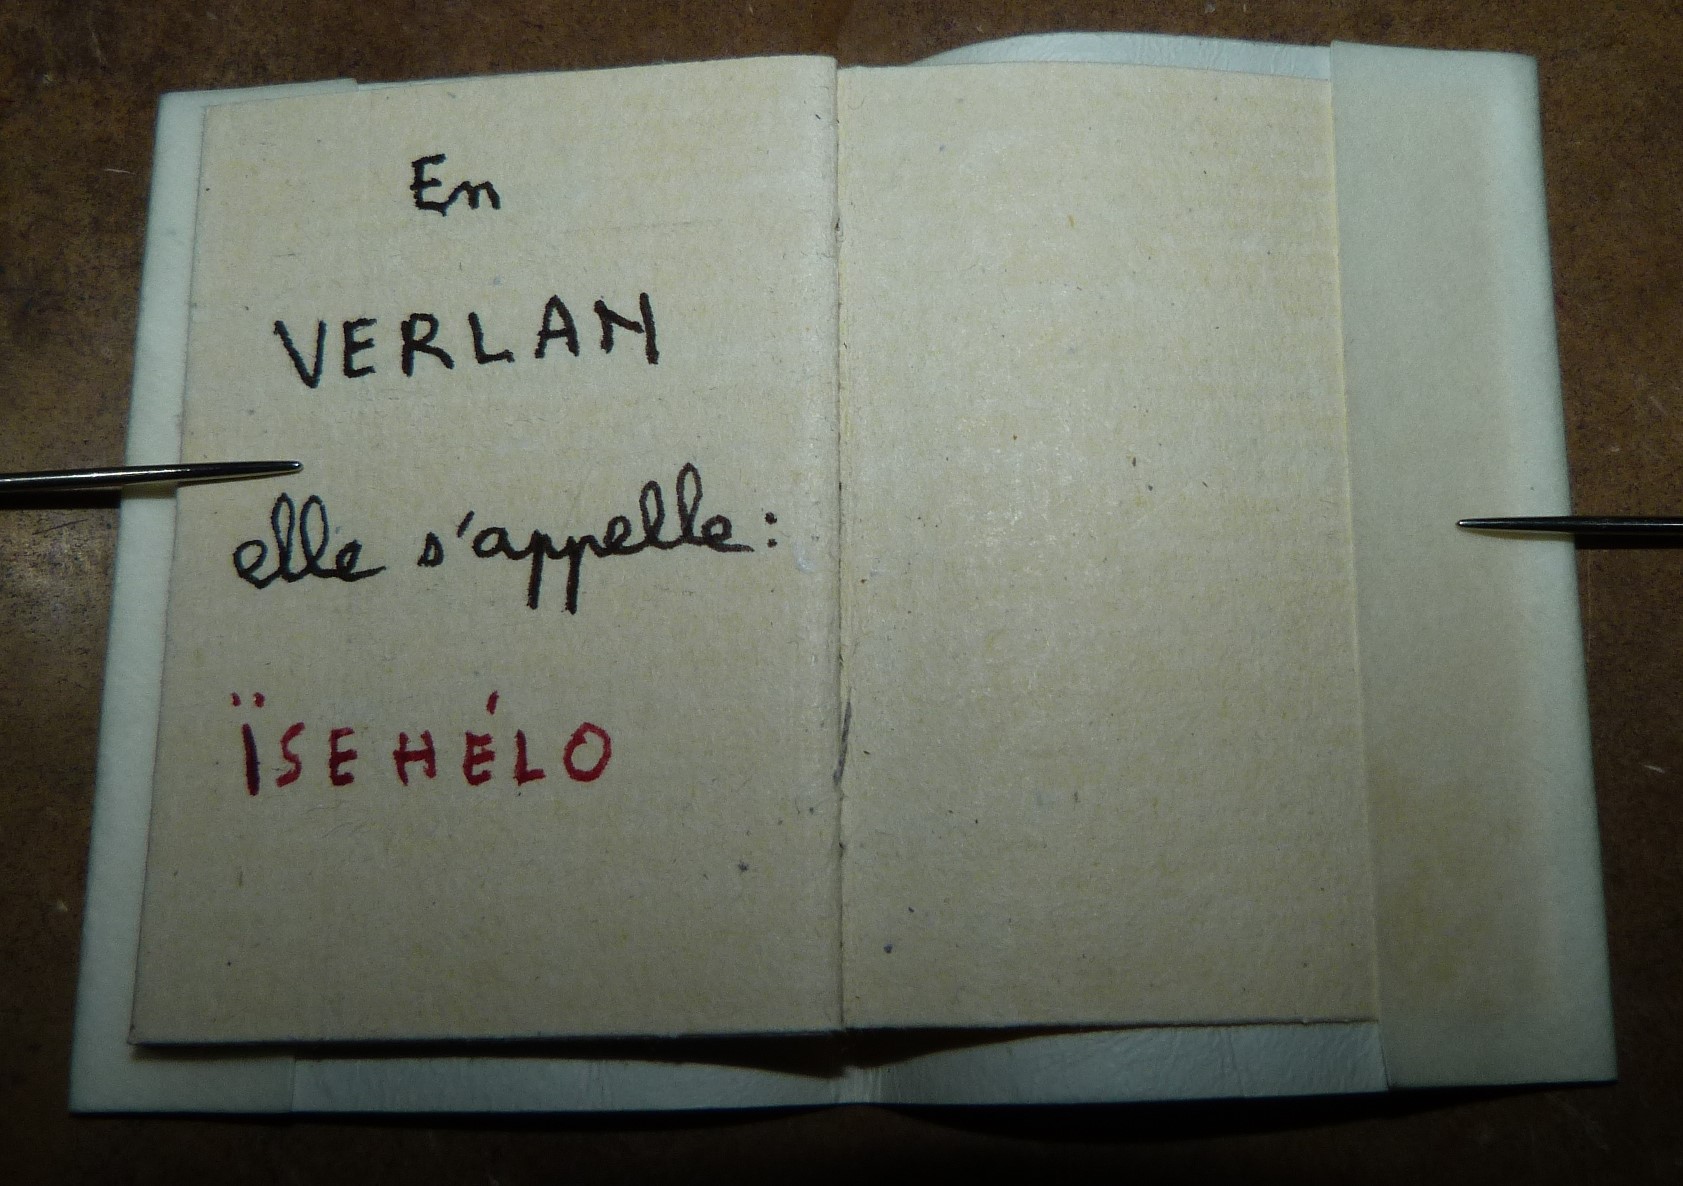 En
VERLAN
elle s'appelle:
ÏSEHÉLO